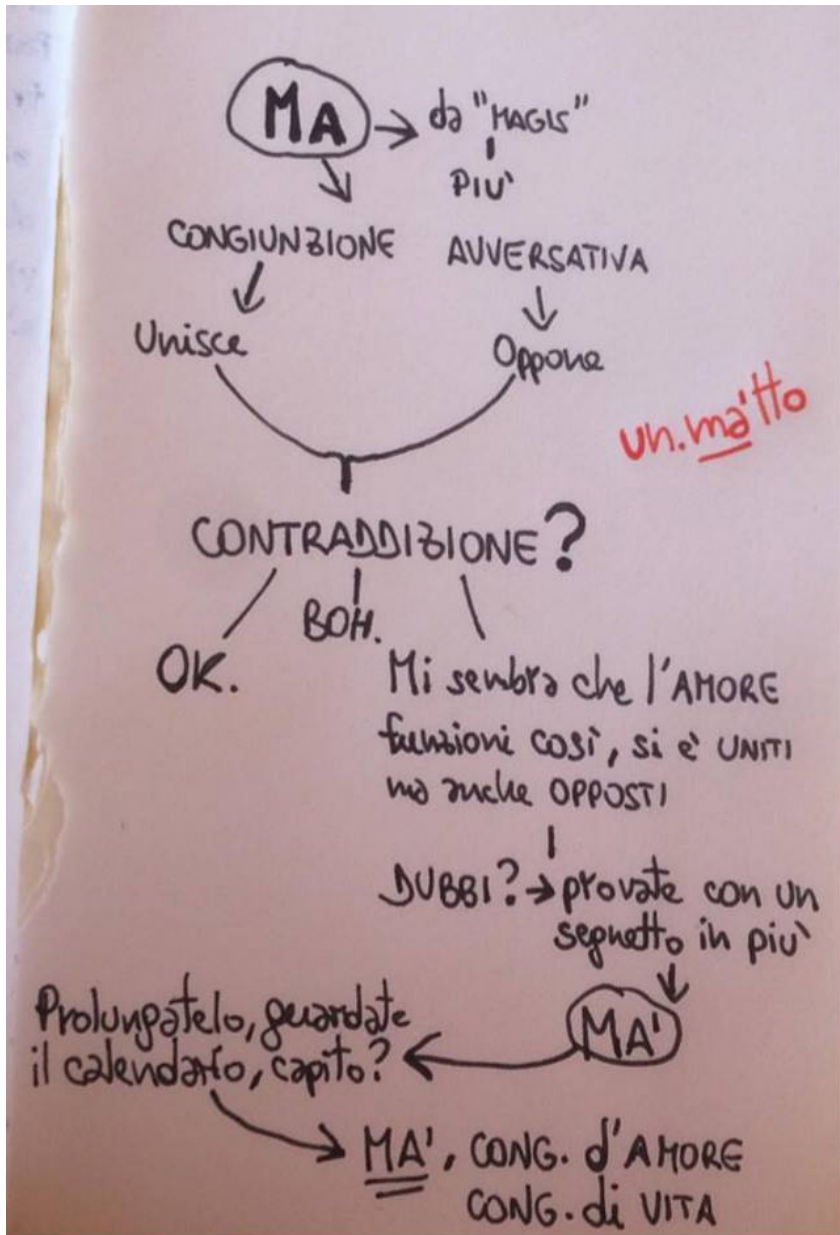 MA → da "MAGIS"
PIU'
CONGIUNZIONE AVVERSATIVA
Unisce Oppone
un.ma'tto
CONTRADDIZIONE?
OK. BOH. Mi sembra che l'AMORE
funzioni così, si e' UNITI
ma anche OPPOSTI
DUBBI? → provate con un
segnetto in piu'
MA'
Prolungatelo, guardate
il calendario, capito?
MA', CONG. d'AMORE
CONG. di VITA